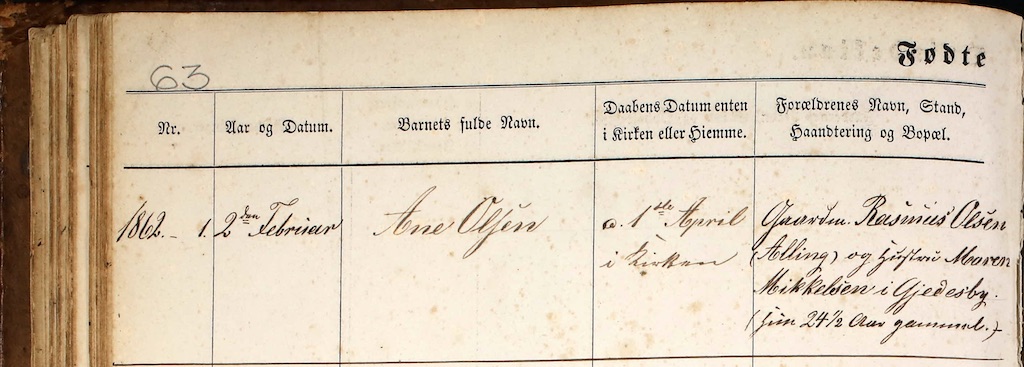 63
Fødte
Nr.
Aar og Datum.
Barnets fulde Navn.
Daabens Datum enten
i Kirken eller Hiemme.
Forældrenes Navn, Stand,
Haandtering og Bopæl.
1862. 1.
2den Februar
Ane Olsen
d. 1ste April
i Kirken
Gaardm. Rasmus Olsen
(Alling) og Hustru Maren
Mikkelsen i Gjedesby.
(hun 24 1/2 Aar gammel.)